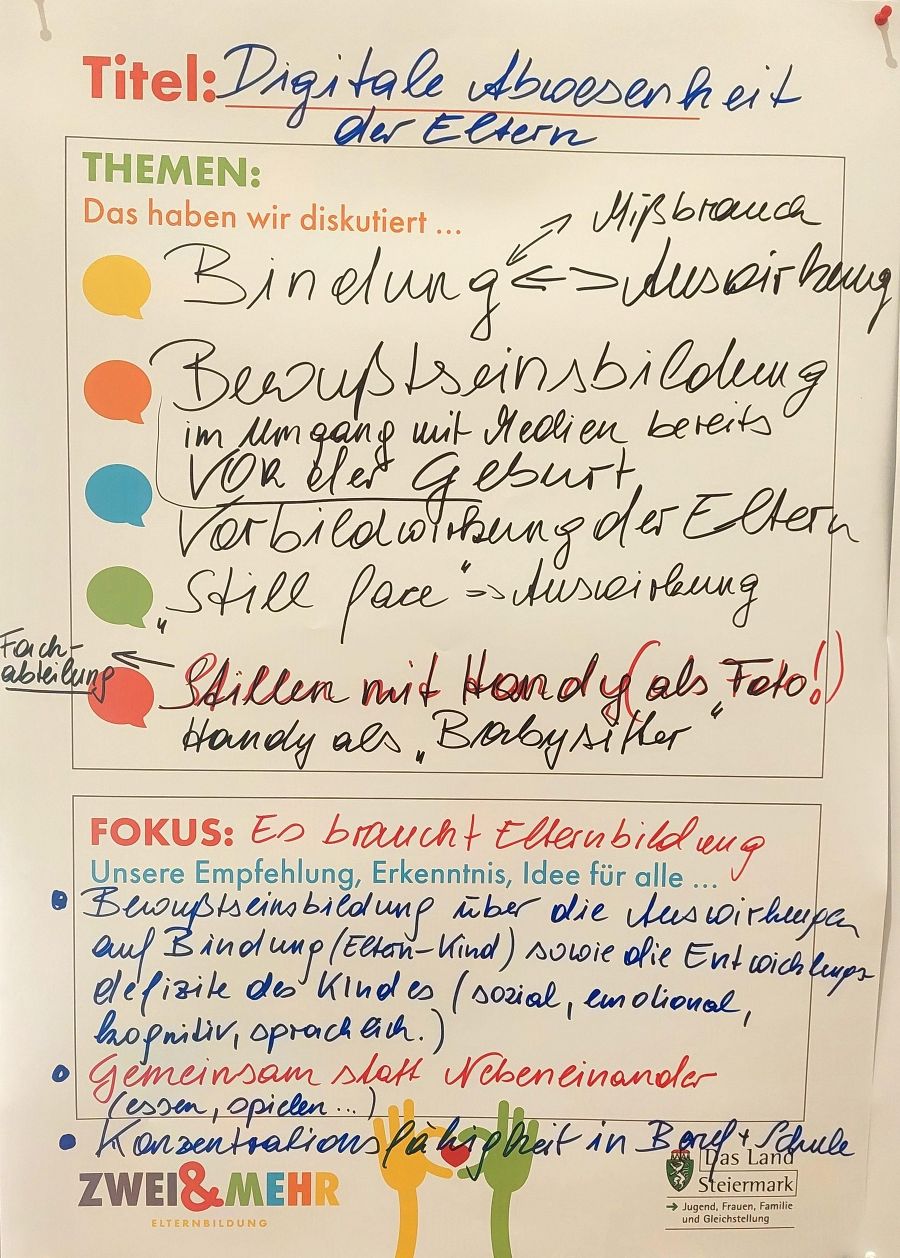 Titel: Digitale Abwesenheit
der Eltern
THEMEN:
Das haben wir diskutiert ...
Mißbrauch
Bindung <-> Auswirkung
Bewußtseinsbildung
im Umgang mit Medien bereits
VOR der Geburt
Vorbildwirkung der Eltern
„Still face" => Auswirkung
Fach-
abteilung
Stillen mit Handy (als „Foto!)
Handy als „Babysitter"
FOKUS: Es braucht Elternbildung
Unsere Empfehlung, Erkenntnis, Idee für alle ...
• Bewußtseinsbildung über die Auswirkungen
auf Bindung (Eltern-Kind) sowie die Entwicklungs-
defizite des Kindes (sozial, emotional,
kognitiv, sprachlich.)
• Gemeinsam statt Nebeneinander
(essen, spielen...)
• Konzentrationsfähigkeit in Beruf + Schule
ZWEI&MEHR
ELTERNBILDUNG
Das Land
Steiermark
→ Jugend, Frauen, Familie
und Gleichstellung